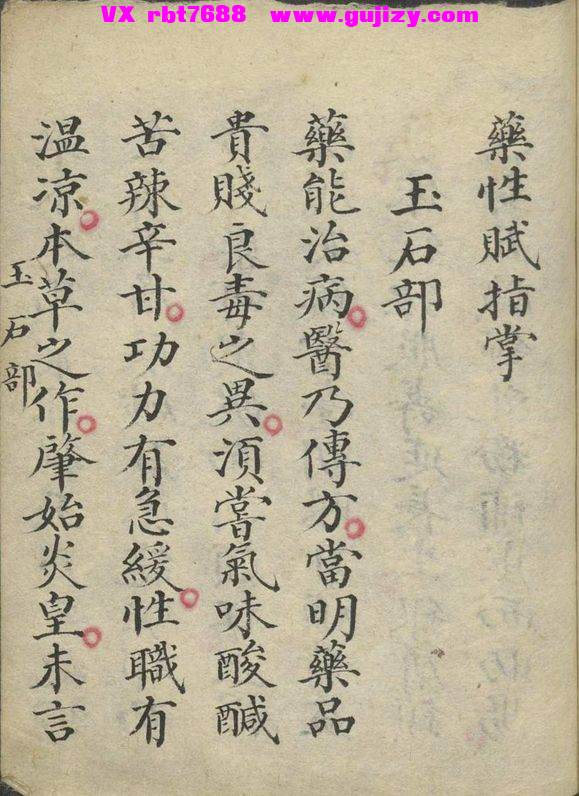 VX rbt7688 www.gujizy.com
藥性賦指掌
玉石部
藥能治病。醫乃傳方。當明藥品
貴賤良毒之異。須嘗氣味酸醎
苦辣辛甘。功力有急緩。性職有
温凉。本草之作。肇始炎皇。未言
玉石部